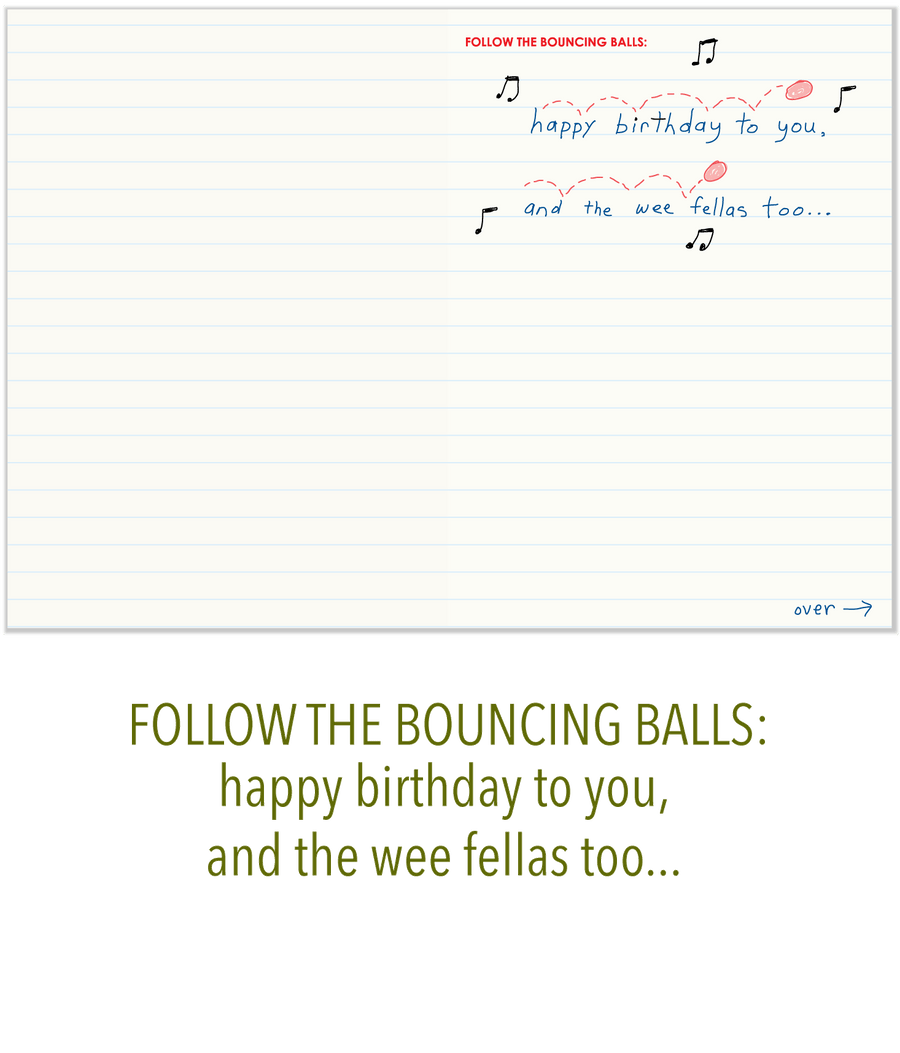 FOLLOW THE BOUNCING BALLS:
happy birthday to you,
and the wee fellas too...
over →
FOLLOW THE BOUNCING BALLS:
happy birthday to you,
and the wee fellas too...